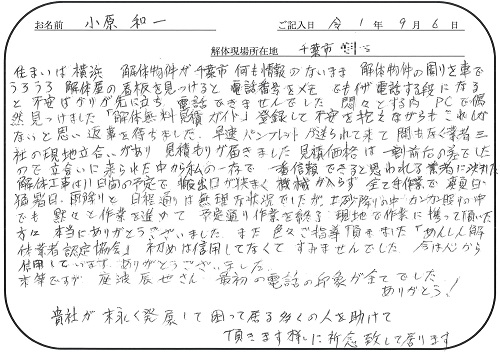 お名前 小原 和一 ご記入日 令 1 年 9 月 6 日
解体現場所在地 千葉市
住まいは横浜 解体物件が千葉市 何も情報のないまま 解体物件の周りを車で
うろうろ 解体屋の看板を見つけると 電話番号をメモ でもイザ電話する段になる
と不安ばかりが先に立ち 電話できませんでした 悶々とする内 PCで偶
然見つけました「解体無料見積ガイド」登録して不安を抱えながらもこれしか
ないと思い返事を待ちました。早速パンフレットが送られて来て 間もなく業者三
社の現地立合いがあり 見積もりが届きました 見積価格は一割前后の差でした
ので 立合いに来られた中から私の一存で 一番信頼できると思われる業者に決めた
解体工事は11日間の予定で 搬出口が狭く 機械が入らず 全て手作業で 真夏日
猛暑日、雨降りと 日程通りは無理な状況でしたが 土砂降りの中 カンカン照りの中
でも 黙々と作業を進めて 予定通り作業を終了 現地で作業に携って頂いた
方々 本当にありがとうございました また 色々ご指導頂きました「あんしん解
体業者認定協会」 初めは信用してなくて すみませんでした 今は心から
信用しています。ありがとうございました。
末筆ですが 辰也さん 最初の電話の印象が全てでした
ありがとう!
貴社が末永く発展して 困って居る多くの人を助けて
頂きます様に祈念致して居ります